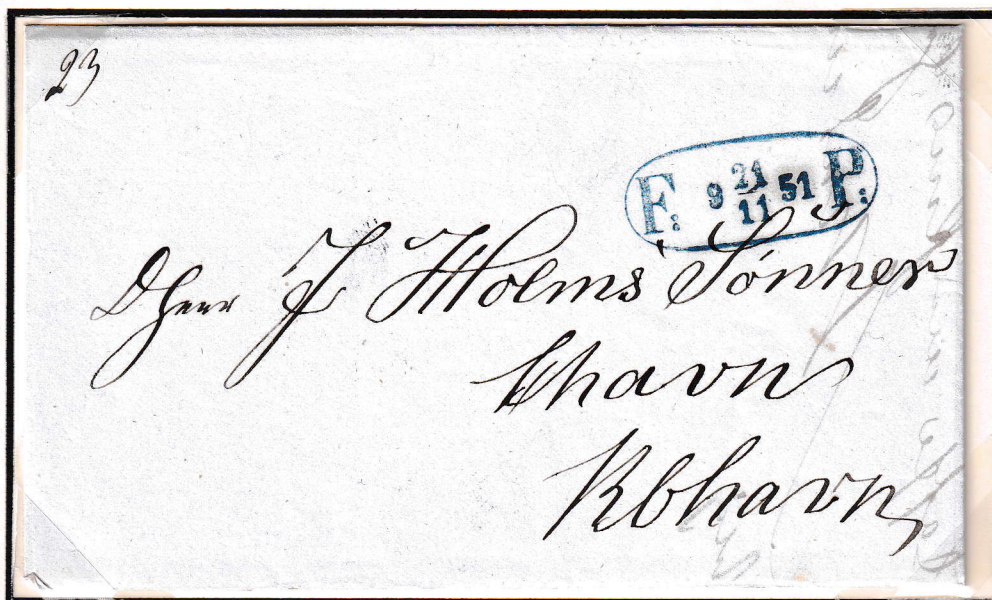 23
F: 9 21/11 51 P:
DHerr J Holms Sønner
Chavn
Kbhavn